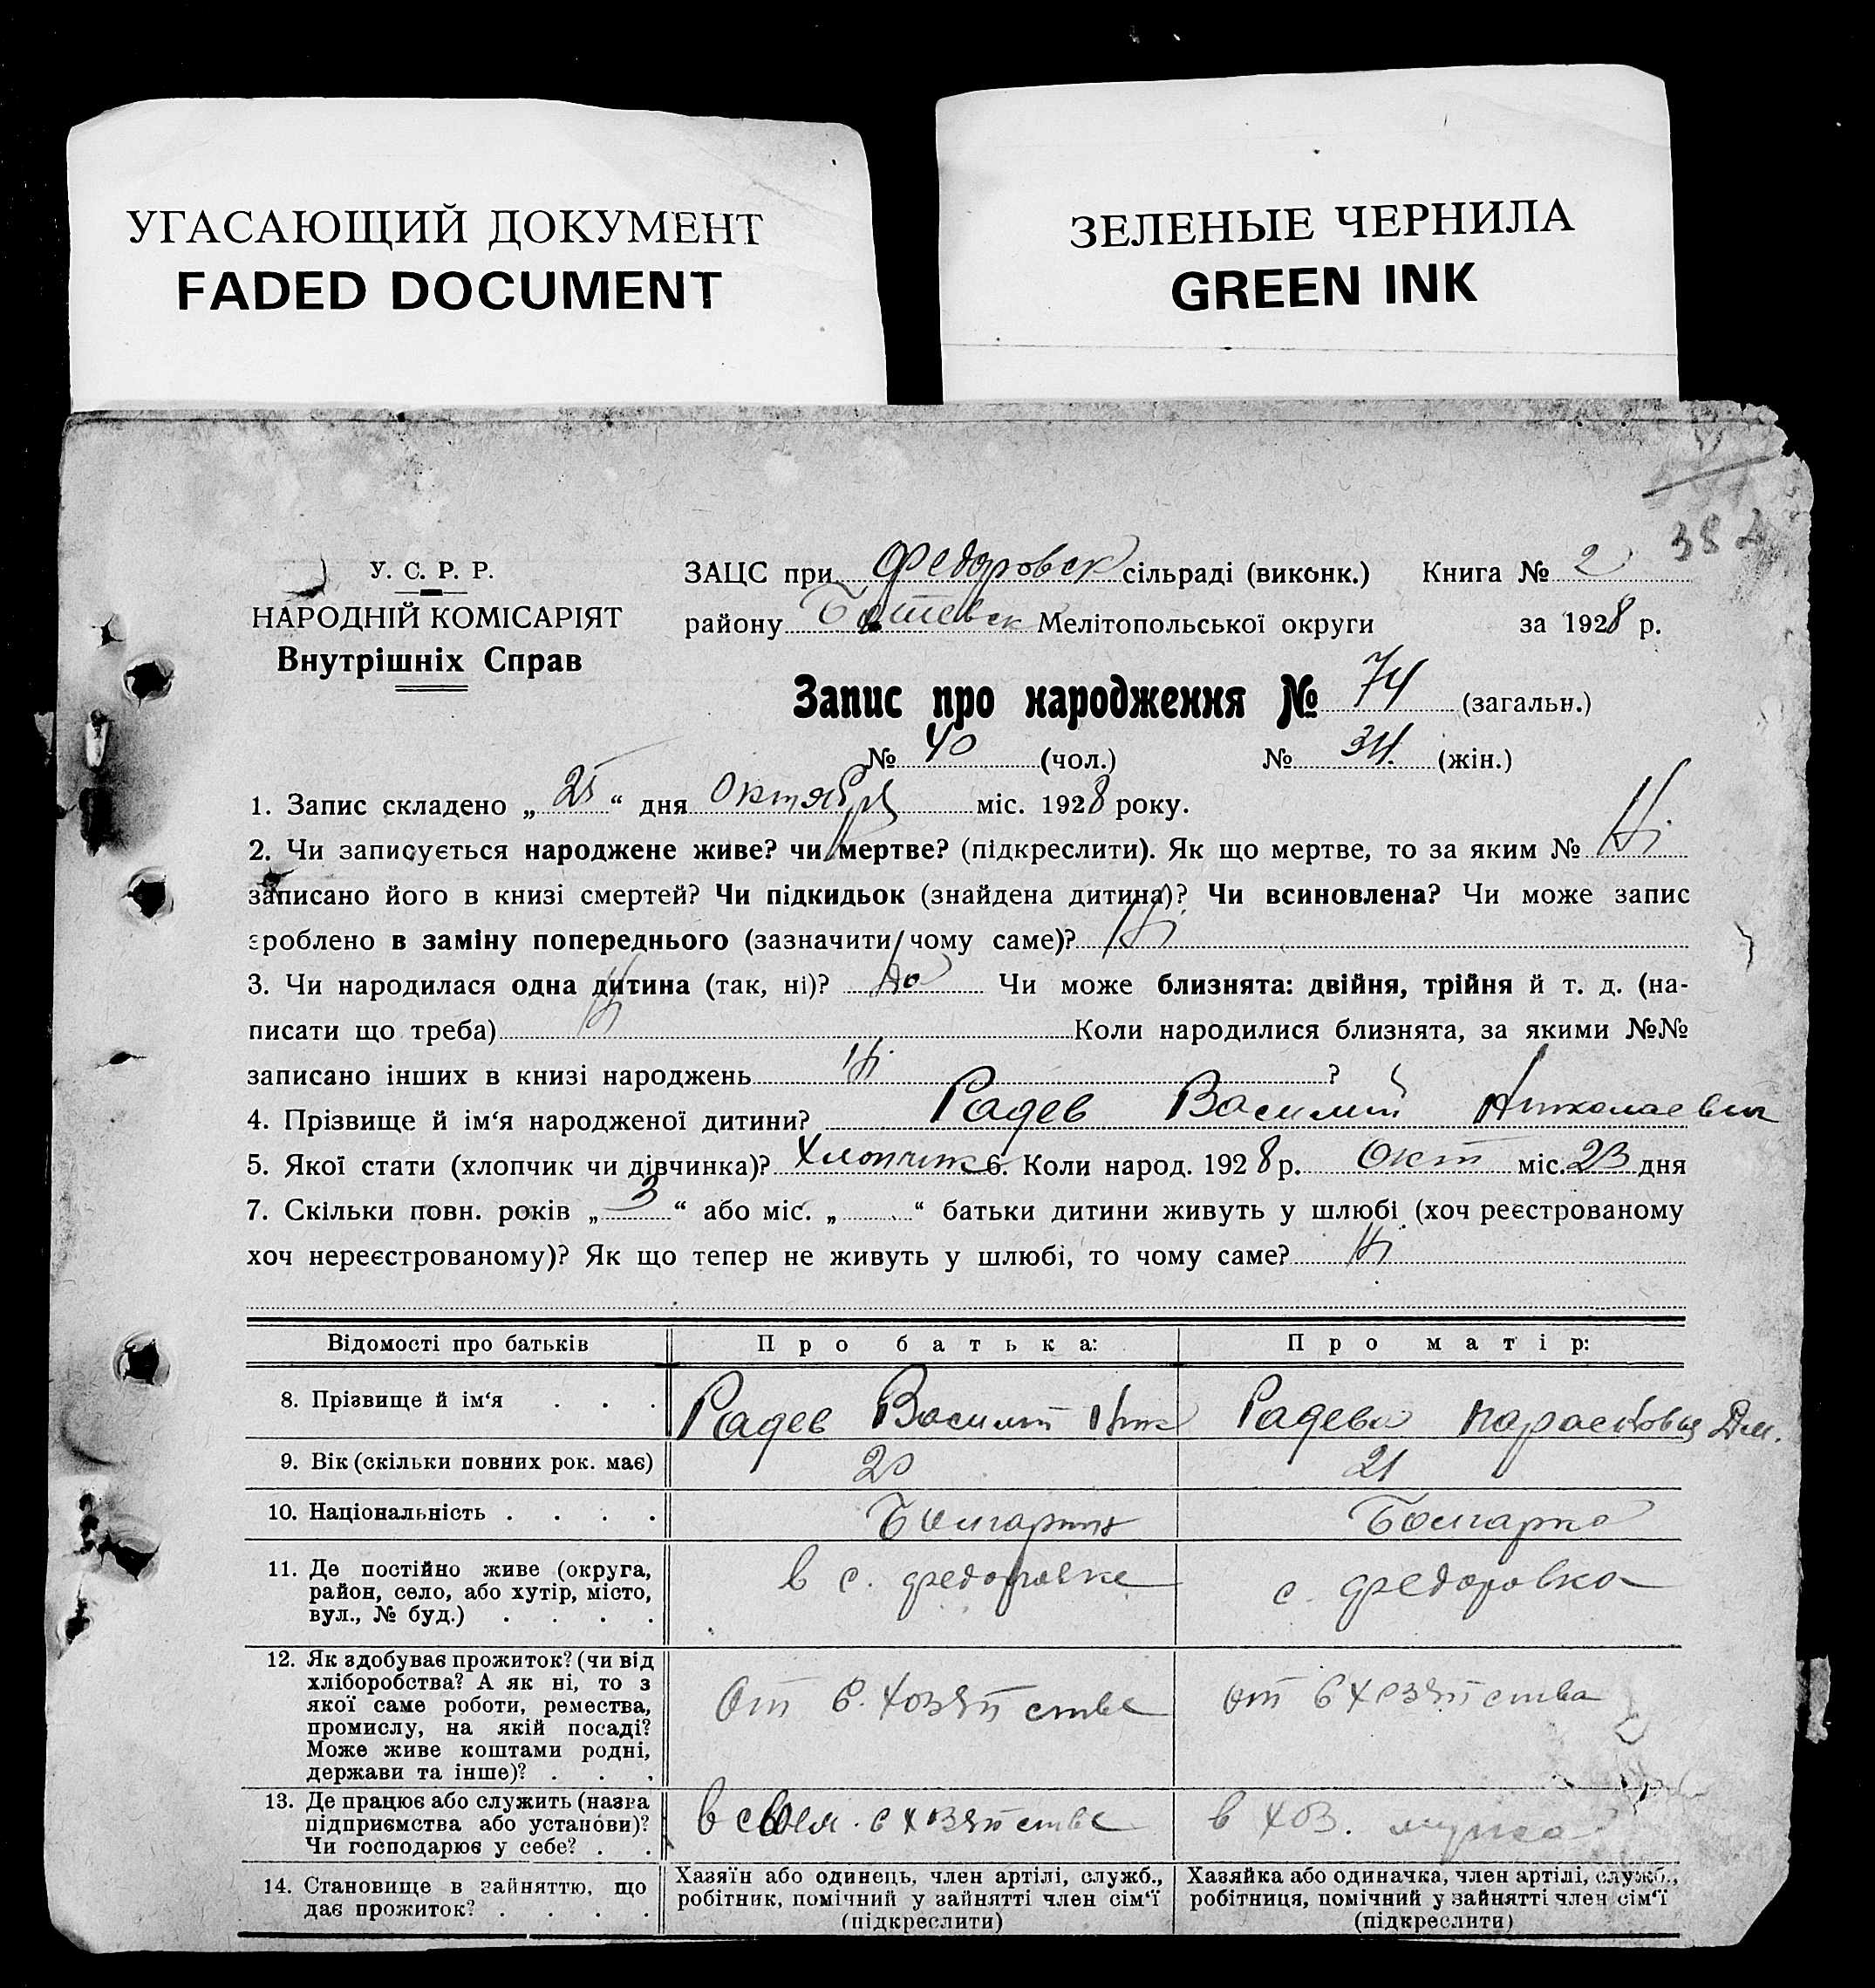 УГАСАЮЩИЙ ДОКУМЕНТ
FADED DOCUMENT
ЗЕЛЕНЫЕ ЧЕРНИЛА
GREEN INK
38
У. С. Р. Р.
НАРОДНІЙ КОМІСАРІЯТ
Внутрішніх Справ
ЗАЦС при Федоровск сільраді (виконк.) Книга № 2
району Ботевск Мелітопольської округи за 1928 р.
Запис про народження № 74 (загальн.)
№ 40 (чол.) № 34. (жін.)
1. Запис складено „ 25 “ дня Октября міс. 1928 року.
2. Чи записується народжене живе? чи мертве? (підкреслити). Як що мертве, то за яким № Ні
записано його в книзі смертей? Чи підкидьок (знайдена дитина)? Чи всиновлена? Чи може запис
зроблено в заміну попереднього (зазначити чому саме)? Ні
3. Чи народилася одна дитина (так, ні)? до Чи може близнята: двійня, трійня й т. д. (на-
писати що треба) Ні Коли народилися близнята, за якими №№
записано інших в книзі народжень Ні ?
4. Прізвище й ім‘я народженої дитини? Радев Василий Николаевич
5. Якої стати (хлопчик чи дівчинка)? Хлопчик 6. Коли народ. 1928 р. Окт міс. 23 дня
7. Скільки повн. років „ 3 “ або міс. „ “ батьки дитини живуть у шлюбі (хоч реєстрованому
хоч нереєстрованому)? Як що тепер не живуть у шлюбі, то чому саме? Ні
Відомості про батьків Про батька: Про матір:
8. Прізвище й ім‘я . . . Радев Василий Ник Радева Парасковья Дм.
9. Вік (скільки повних рок. має) 20 21
10. Національність . . . . Болгарин Болгарка
11. Де постійно живе (округа,
район, село, або хутір, місто,
вул., № буд.) . . . .
в с. Федоровке с. Федоровка
12. Як здобуває прожиток? (чи від
хліборобства? А як ні, то з
якої саме роботи, ремества,
промислу, на якій посаді?
Може живе коштами родні,
держави та інше)? . . .
От с. хозяйства от с хозяйства
13. Де працює або служить (назва
підприємства або установи)?
Чи господарює у себе? . .
в своем. с хозяйстве в хоз. мужа
14. Становище в зайняттю, що
дає прожиток? . . . .
Хазяїн або одинець, член артілі, служб.,
робітник, помічний у зайнятті член сім‘ї
(підкреслити)
Хазяйка або одиначка, член артілі, служб.,
робітниця, помічний у зайнятті член сім‘ї
(підкреслити)